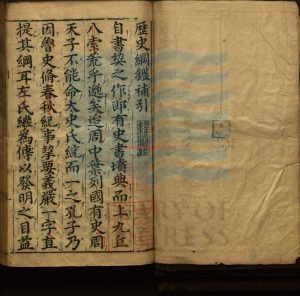 歷史綱鑑補引
自書契之作即有史書墳典而上九丘
八索荒乎邈矣迨周中葉列國有史周
天子不能命太史氏統而一之孔子乃
因魯史脩春秋紀事挈要義嚴一字直
提其綱耳左氏繼爲傳以發明之目益